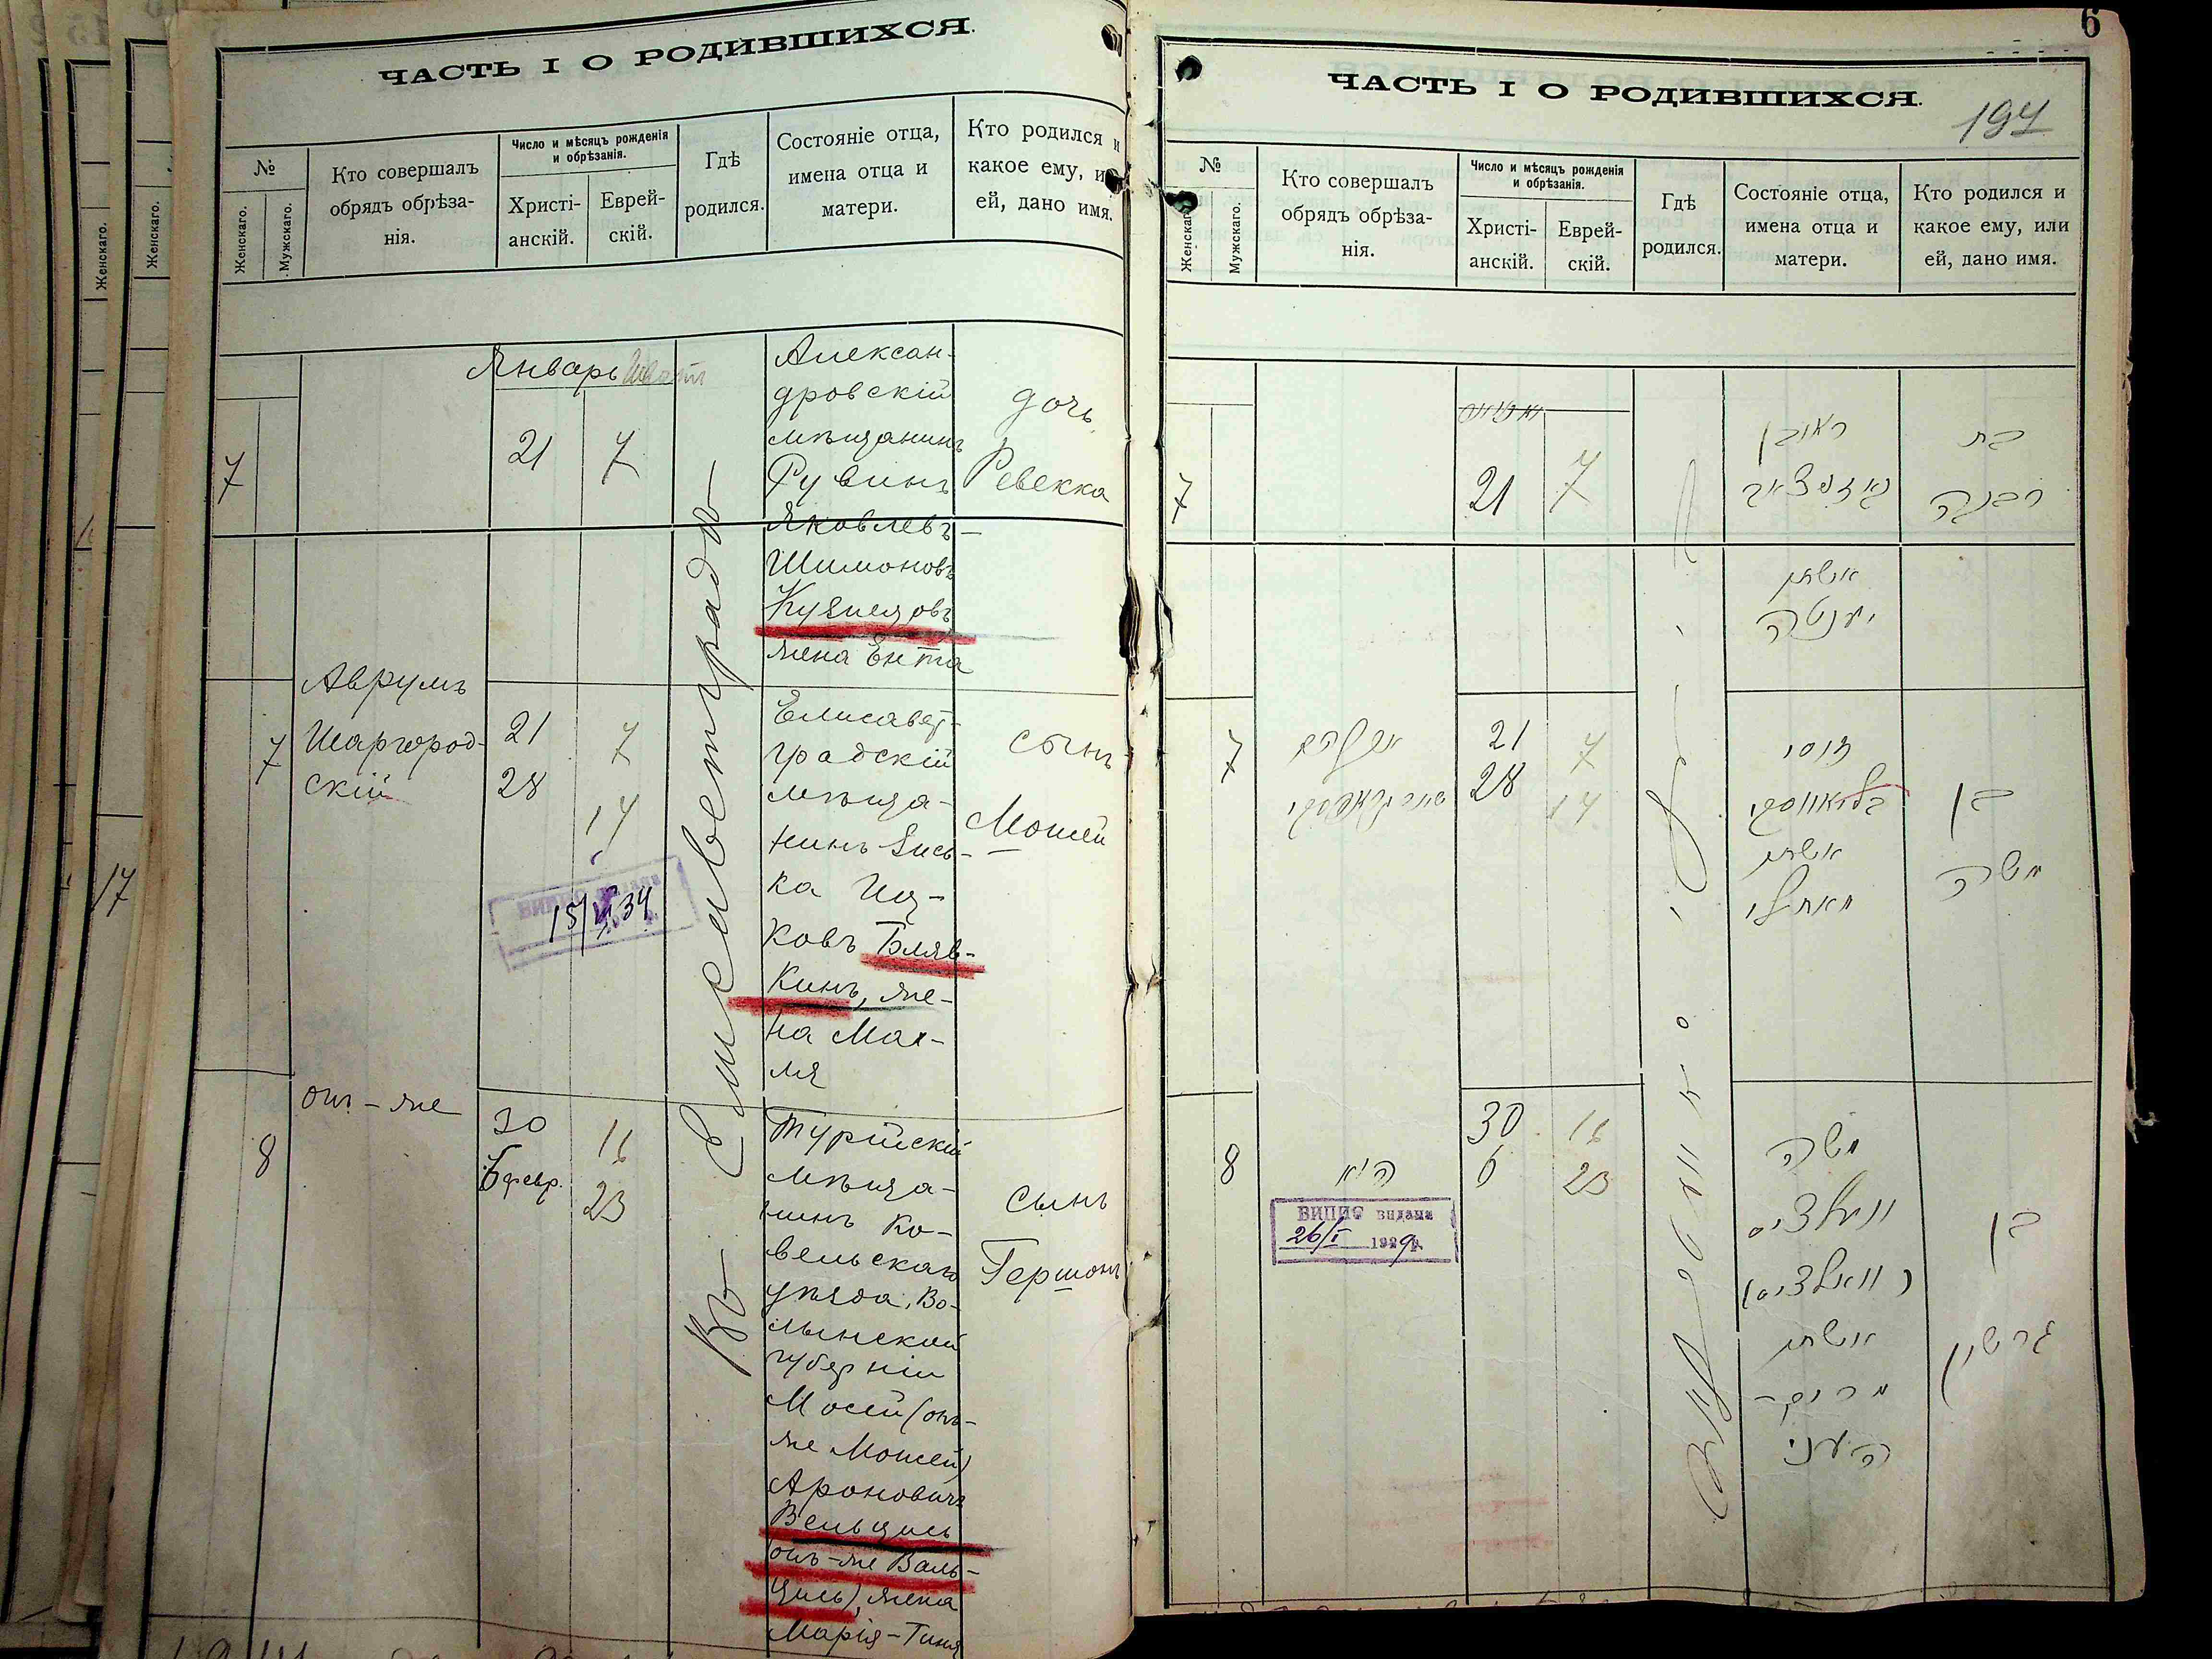 ЧАСТЬ I О РОДИВШИХСЯ.
№
Женскаго.
Мужскаго.
Кто совершалъ
обрядъ обрѣза-
нія.
Число и мѣсяцъ рожденія
и обрѣзанія.
Христі-
анскій.
Еврей-
скій.
Гдѣ
родился.
Состояніе отца,
имена отца и
матери.
Кто родился и
какое ему, и
ей, дано имя.
Январь
7
21
7
Въ Елисаветградѣ
Алексан-
дровскій
мѣщанинъ
Рувинъ
Яковлевъ-
Шимоновъ
Кузнецовъ
жена Ента
дочь
Ревекка
7
Аврумъ
Шаргород-
скій
21
28
7
14
15/VI 34
Елисавет-
градскій
мѣща-
нинъ Зись-
ка Иц-
ковъ Бляв-
кинъ, же-
на Мах-
ля
сынъ
Мошей
8
онъ-же
30
6 февр.
16
23
Турійскій
мѣща-
нинъ Ко-
вельскаго
уѣзда, Во-
лынской
губерніи
Мосей (онъ-
же Мошей)
Ароновичъ
Вельцись
онъ-же Валь-
цись), жена
Марія-Гиня
сынъ
Гершонъ
6
ЧАСТЬ I О РОДИВШИХСЯ.
194
№
Женскаго.
Мужскаго.
Кто совершалъ
обрядъ обрѣза-
нія.
Число и мѣсяцъ рожденія
и обрѣзанія.
Христі-
анскій.
Еврей-
скій.
Гдѣ
родился.
Состояніе отца,
имена отца и
матери.
Кто родился и
какое ему, или
ей, дано имя.
7
21
7
ראובן
אשתו
יענטה
בת
רבקה
7
אברהם
21
28
7
14
זוסי
אשתו
מאחלי
בן
משה
8
הוא
ВИПИС видана
26/I 1929р.
30
6
16
23
משה
וועלציס
(וואלציס)
אשתו
מרים-
העני
בן
גרשון
17